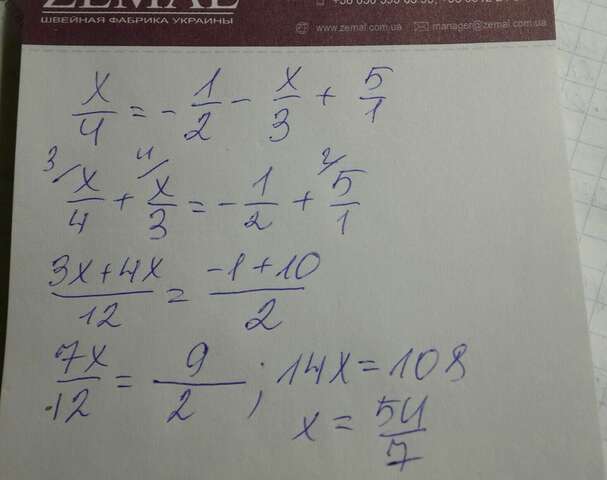 ZEMAL
ШВЕЙНАЯ ФАБРИКА УКРАИНЫ
www.zemal.com.ua manager@zemal.com.ua
x/4 = -1/2 - x/3 + 5/1
3/ x/4 + 4/ x/3 = -1/2 + 2/ 5/1
(3x+4x)/12 = (-1+10)/2
7x/12 = 9/2 ; 14x = 108
x = 54/7